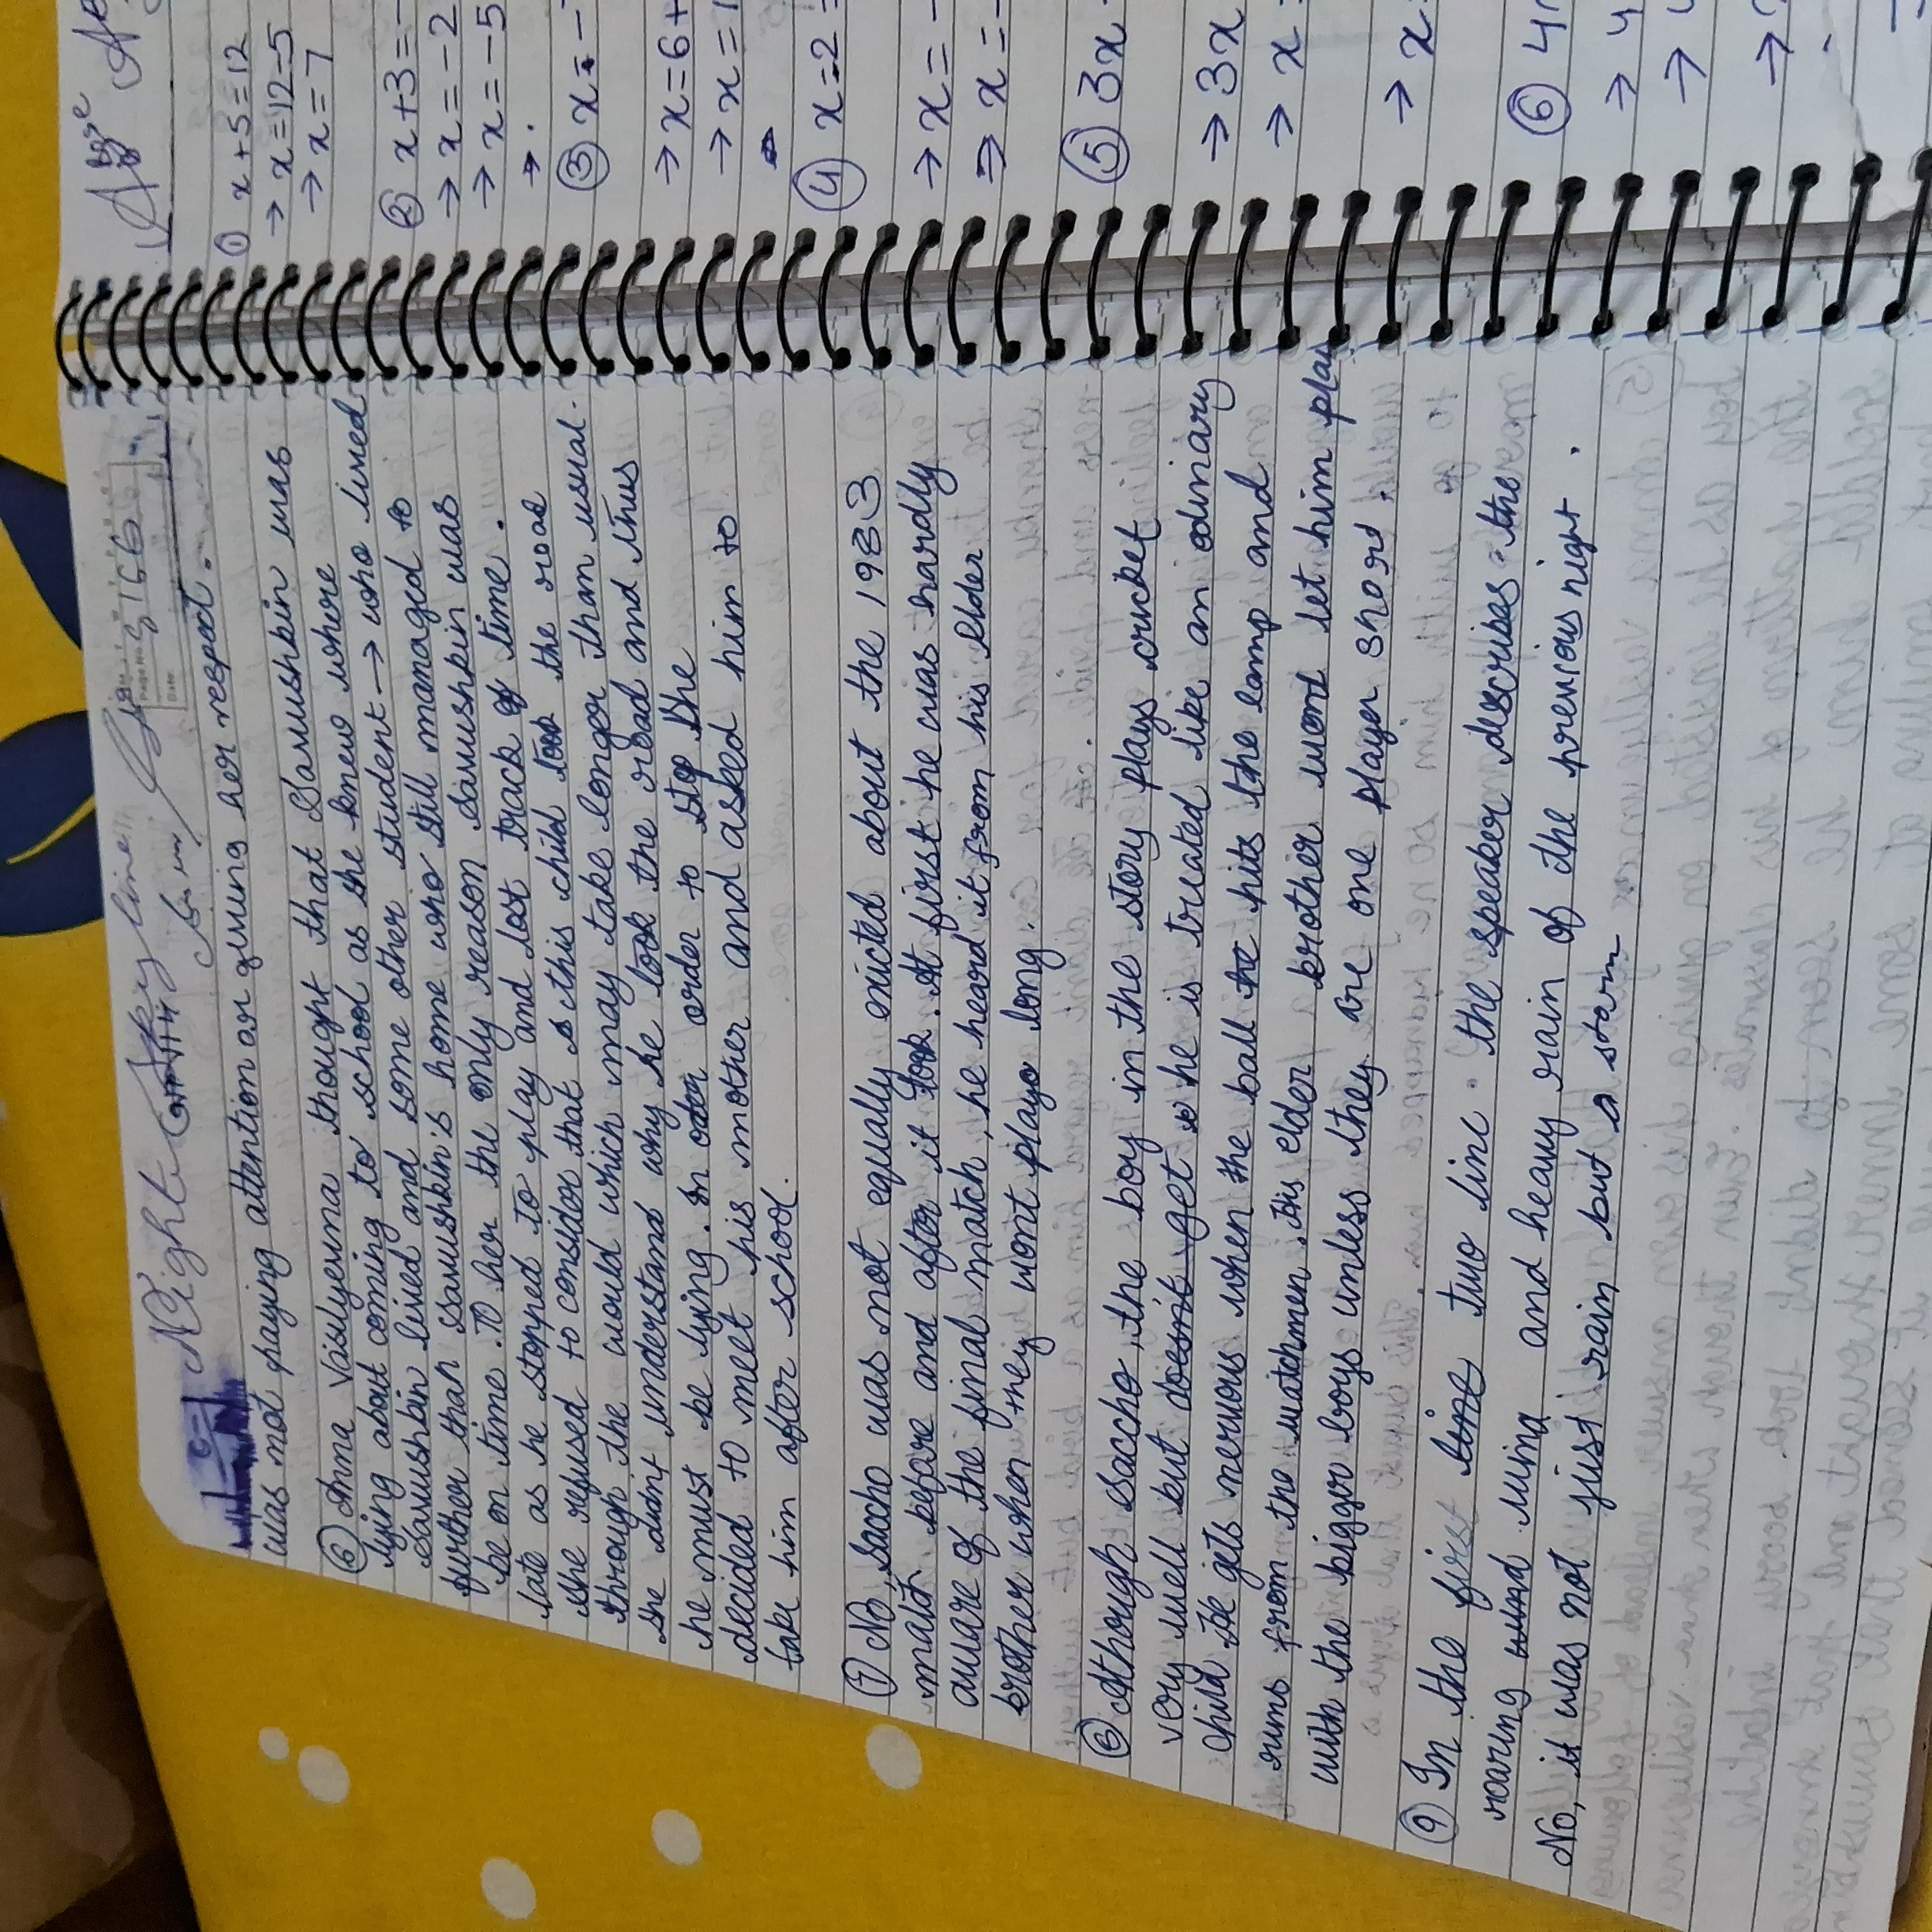 Night
Page No. 166
Date
was not paying attention or giving her respect.
⑥ Anna Vasilyevna thought that Savushkin was
lying about coming to school as she knew where
Savushkin lived and some other student → who lived
further than Savushkin's home who still managed to
be on time. To her the only reason Savushkin was
late as he stopped to play and lost track of time.
She refused to consider that this child took the road
through the would which may take longer than usual.
She didnt understand why he took the road and thus
he must be lying. In order to stop she
decided to meet his mother and asked him to
take him after school.
⑦ No, Saccho was not equally exicted about the 1983
match before and after it took. At first he was hardly
aware of the final match, he heard it from his elder
brother when they wont play long.
⑧ Although saccho, the boy in the story plays cricket
very well but doesnt get he is treated like an odinary
child. He gets nervous when the ball he hits the lamp and
runs from the watchmen. His elder brother wond let him play
with the bigger boys unless they are one player short.
⑨ In the first line two line. the speaker describes the
roaring wind and heavy rain of the previous night.
No, it was not just rain but a storm
① x+5=12
→ x=12-5
→ x=7
② x+3=-
→ x=-2
→ x=-5
③ x-
→ x=6+
→ x=1
④ x-2=
→ x=-
→ x=
⑤ 3x
→ 3x
→ x
→ x
⑥ 4
→ 4